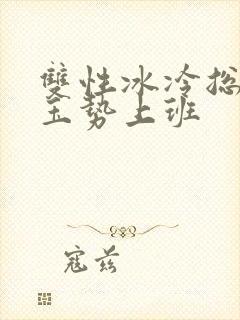 雙性冰冷总
玉势上班
寇兹